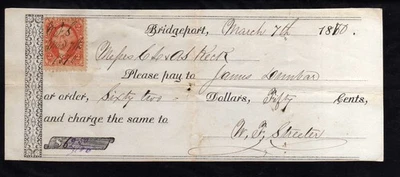 Bridgeport, March 7th 1870.
Messrs Chs A Keck
Please pay to James Dunbar
or order, Sixty two Dollars, Fifty Cents,
and charge the same to
W. F. Streeter